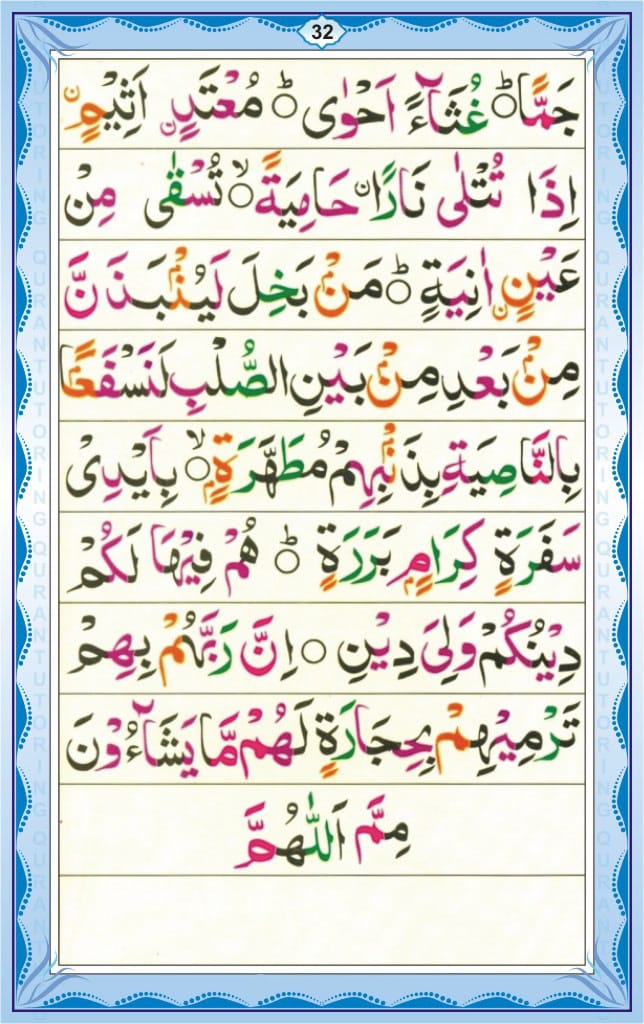 32
جَمًّا ؕ غُثَآءً اَحْوٰى ؕ مُعْتَدٍ اَثِيْمٍ
اِذَا تُتْلٰى نَارًا حَامِيَةً ۙ تُسْقٰى مِنْ
عَيْنٍ اٰنِيَةٍ ؕ مَنْۢ بَخِلَ لَيُنْۢبَذَنَّ
مِنْۢ بَعْدِ مِنْۢ بَيْنِ الصُّلْبِ لَنَسْفَعًۢا
بِالنَّاصِيَةِ بِذَنْۢبِهِمْ مُطَهَّرَةٍۭ ۙ بِاَيْدِىْ
سَفَرَةٍ كِرَامٍۭ بَرَرَةٍ ؕ هُمْ فِيْهَا لَكُمْ
دِيْنُكُمْ وَلِىَ دِيْنِ ○ اِنَّ رَبَّهُمْ بِهِمْ
تَرْمِيْهِمْ بِحِجَارَةٍ لَهُمْ مَّا يَشَآءُوْنَ
مِمَّ اَللّٰهُمَّ
QURAN TUTORING QURAN TUTORING QURAN
QURAN TUTORING QURAN TUTORING QURAN